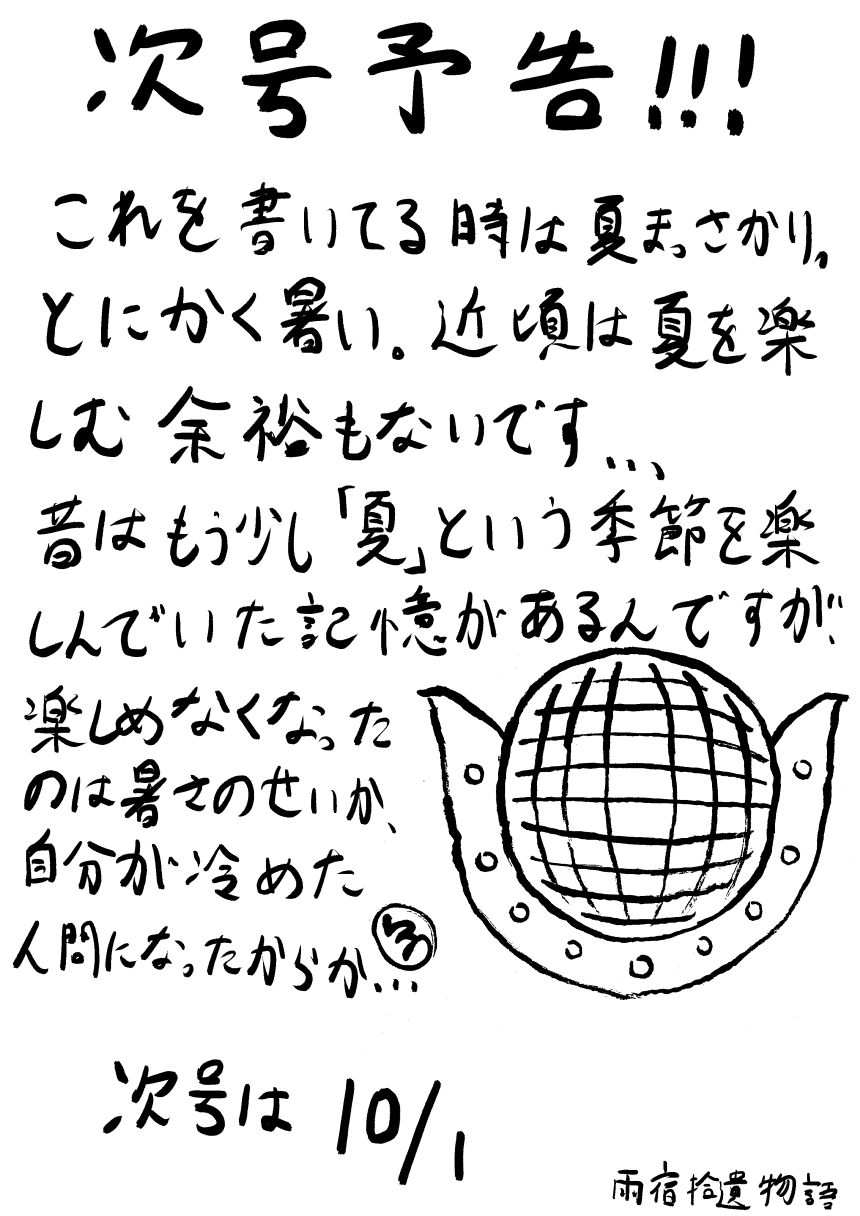 次号予告!!!
これを書いてる時は夏まっさかり。
とにかく暑い。近頃は夏を楽
しむ余裕もないです...
昔はもう少し「夏」という季節を楽
しんでいた記憶があるんですが..
楽しめなくなった
のは暑さのせいか、
自分が冷めた
人間になったからか...
次号は10/1
雨宿拾遺物語